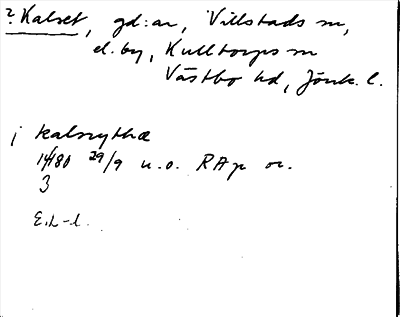 ? Kalset, gd:ar, Villstads sn,
el. by, Kulltorps sn
Västbo hd, Jönk. l.
j kalsrythæ
1480 29/9 u.o. RAp or.
3
E.L-l.